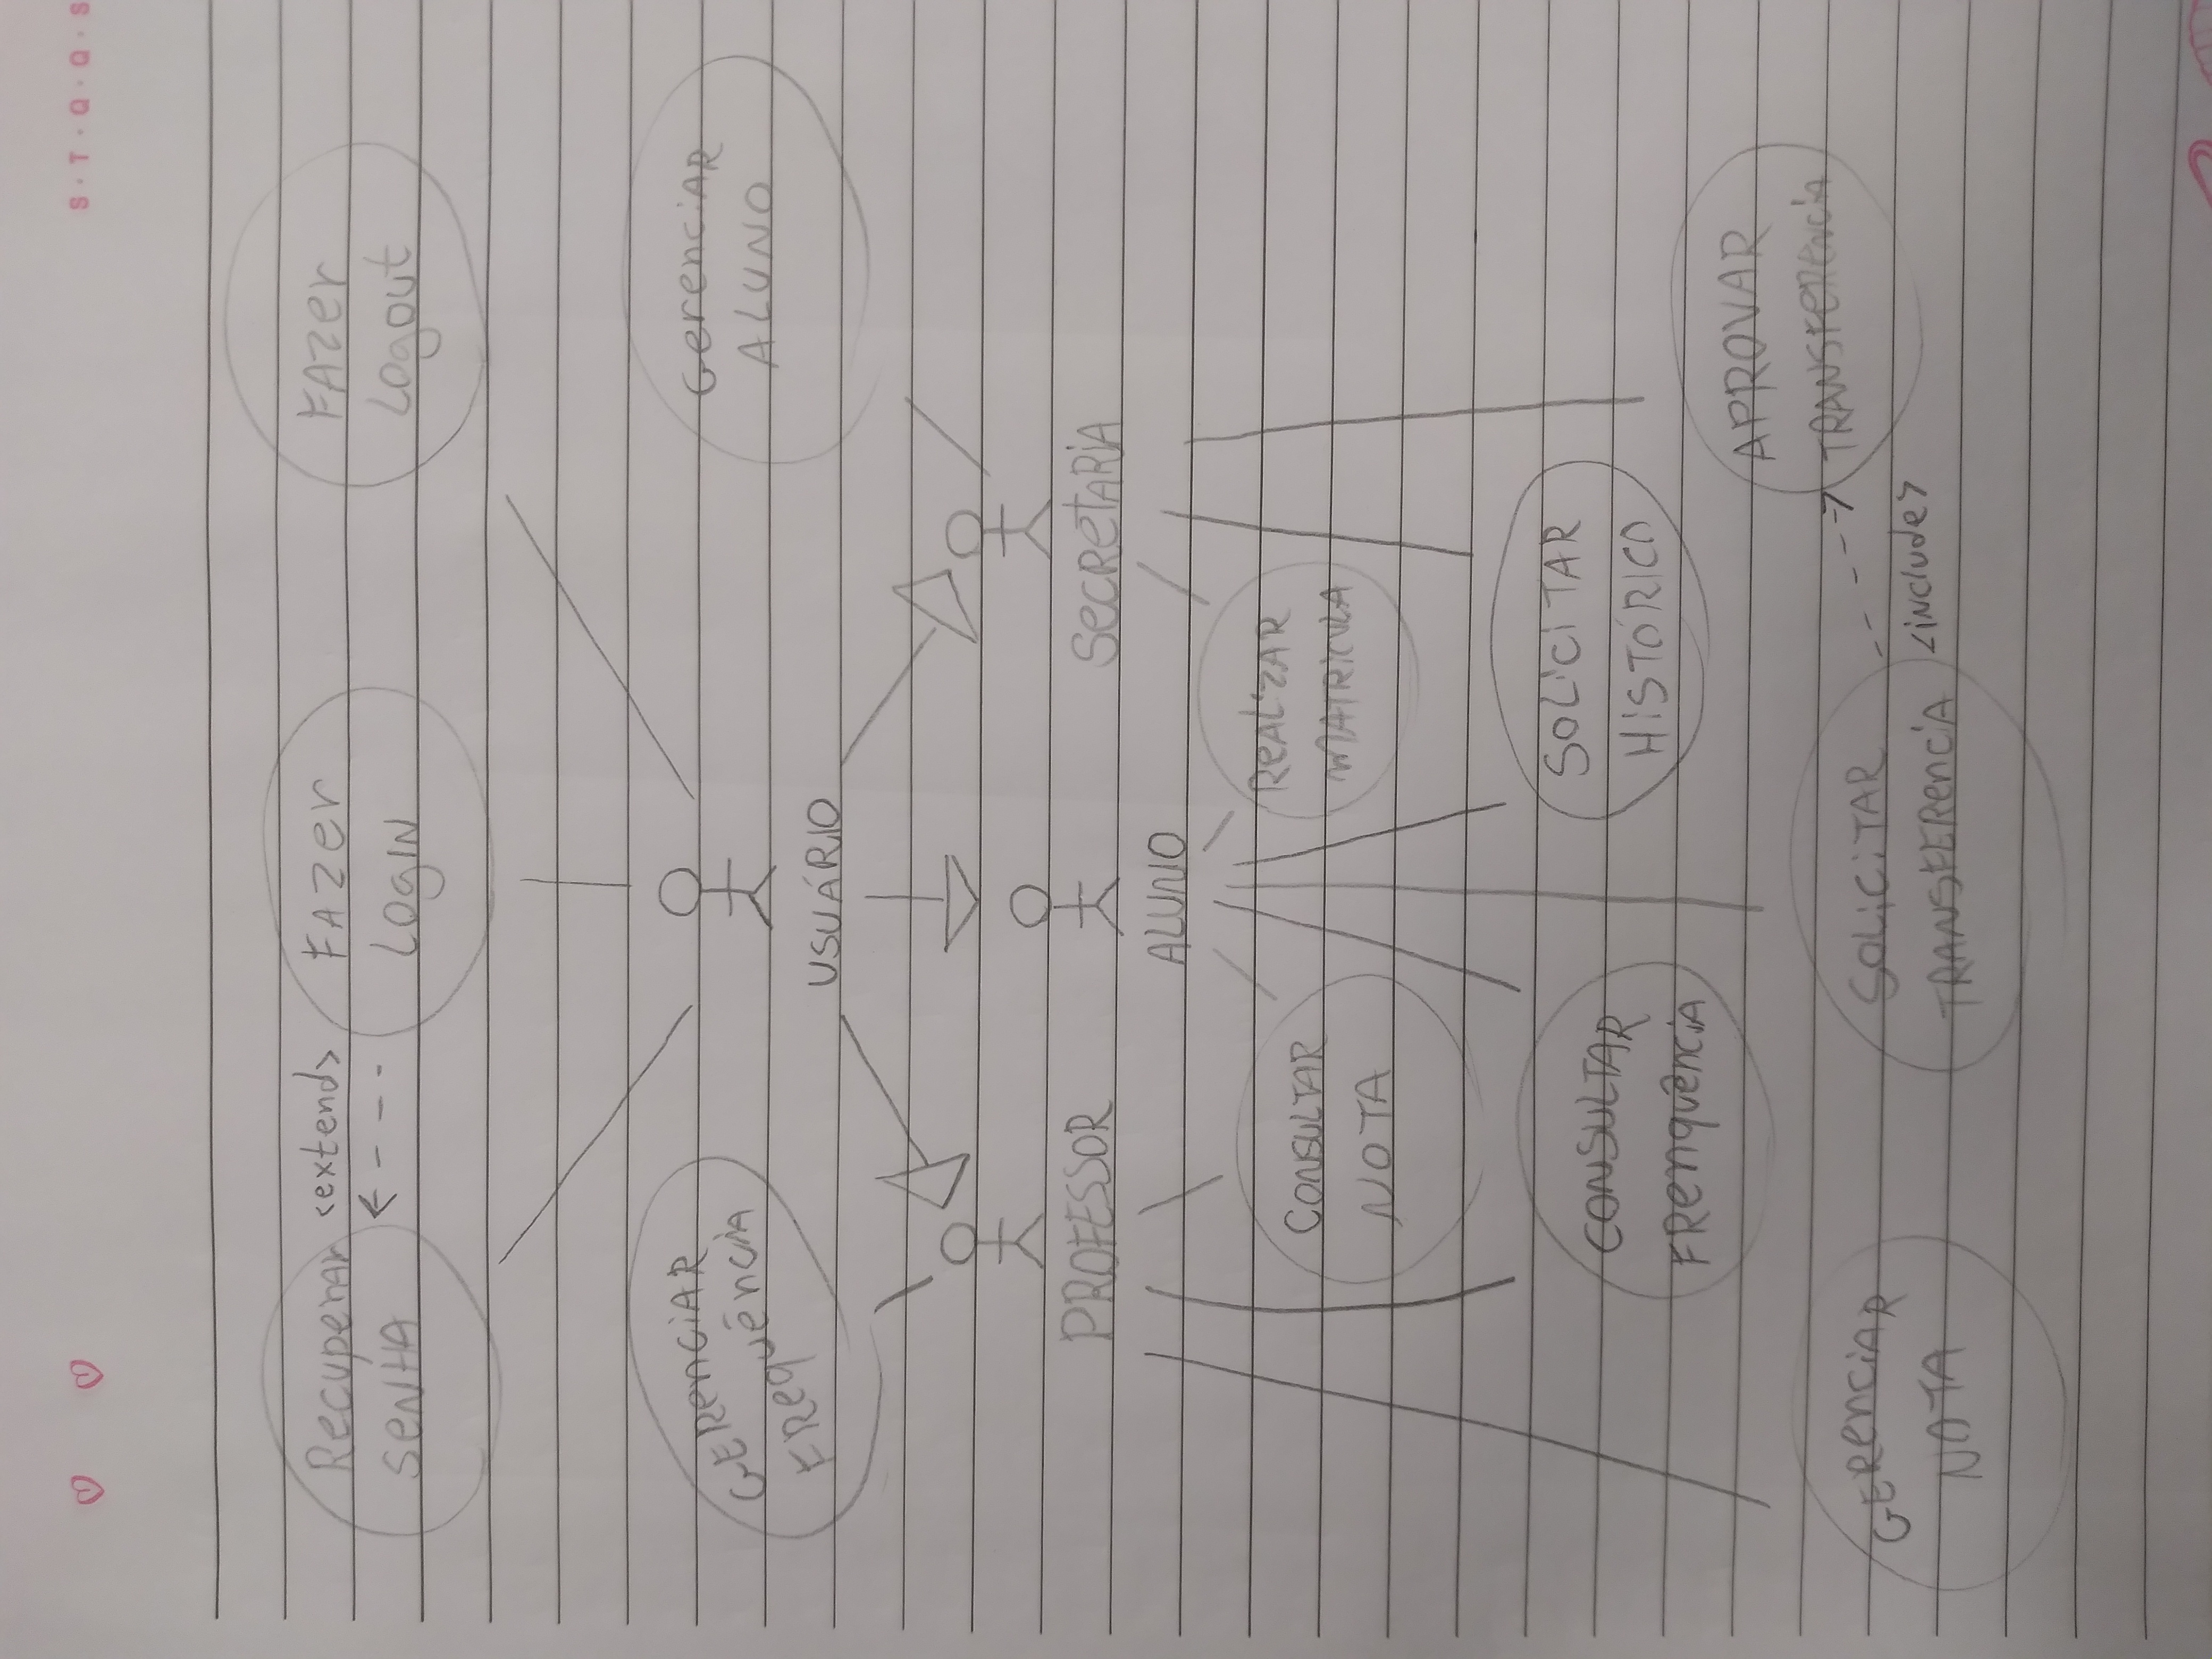 S · T · Q · Q · S
Recuperar
SENHA
<extend>
FAZER
LOGIN
FAZER
LOGOUT
GERENCIAR
FREQUÊNCIA
GERENCIAR
ALUNO
USUÁRIO
PROFESSOR
SECRETARIA
ALUNO
CONSULTAR
NOTA
REALIZAR
MATRICULA
CONSULTAR
FRENQUÊNCIA
SOLICITAR
HISTÓRICO
APROVAR
TRANSFERENCIA
GERENCIAR
NOTA
SOLICITAR
TRANSFERENCIA
<include>